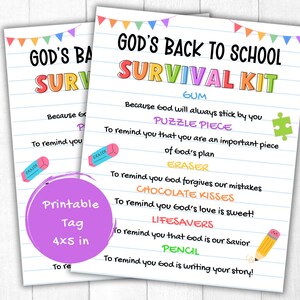 GOD'S BA
SURV
Becaus
P
To remind you
To r
GOD'S BACK TO SCHOOL
SURVIVAL KIT
GUM
Because God will always stick by you
PUZZLE PIECE
To remind you that you are an important piece
of God's plan
ERASER
To remind you God forgives our mistakes
CHOCOLATE KISSES
To remind you God's love is sweet!
LIFESAVERS
To remind you that God is our Savior
PENCIL
To remind you God is writing your story!
Printable
Tag
4x5 in